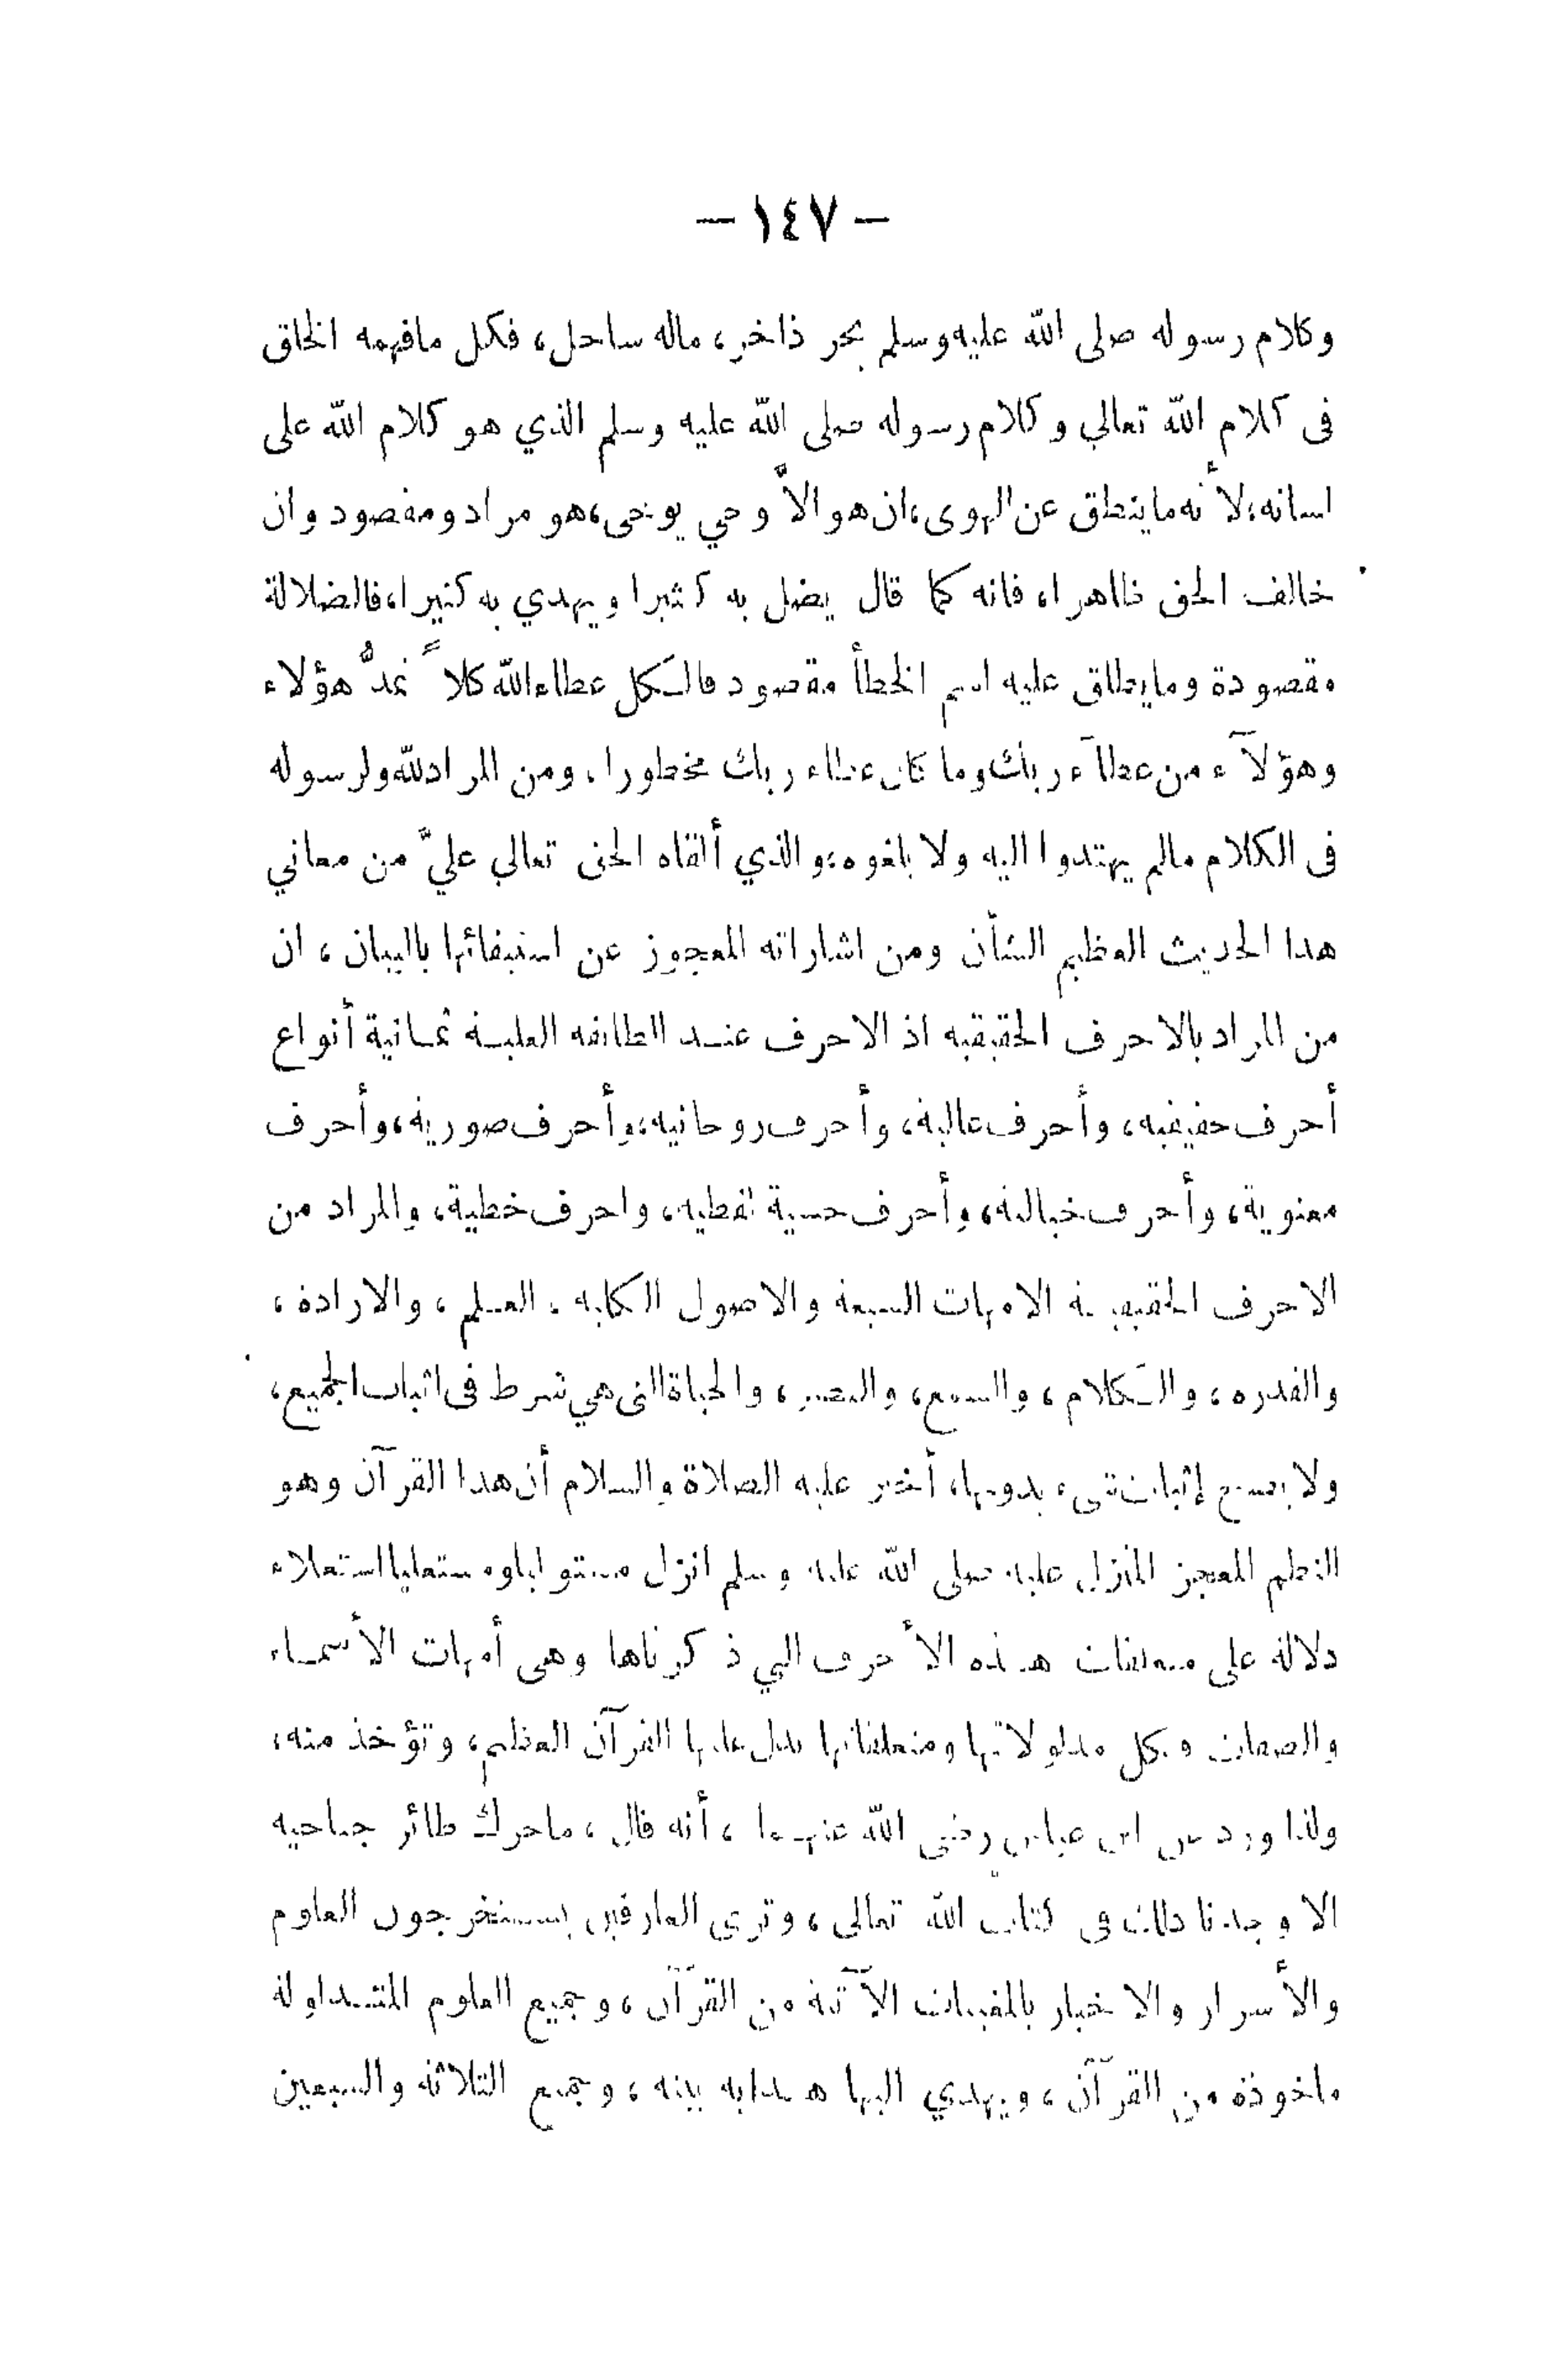 — ١٤٧ —
وكلام رسوله صلى الله عليه وسلم بحر ذاخر، ماله ساحل، فكل مافهمه الخلق
فى كلام الله تعالي وكلام رسوله صلى الله عليه وسلم الذي هو كلام الله على
لسانه، لأنه ما ينطق عن الهوى، ان هو الاَّ وحي يوحى، هو مراد ومقصود وان
خالف الحق ظاهرا، فانه كما قال يضل به كثيرا ويهدي به كثيرا، فالضلالة
مقصودة وما يطلق عليه اسم الخطأ مقصود فالكل عطاء الله كلاً نمدُّ هؤلاء
وهؤلآء من عطآء ربك وما كان عطاء ربك محظورا، ومن المراد لله ولرسوله
فى الكلام مالم يهتدوا اليه ولا بلغوه، والذي ألقاه الحق تعالي عليَّ من معاني
هذا الحديث العظيم الشأن ومن اشاراته المعجوز عن استيفائها بالبيان، ان
من المراد بالاحرف الحقيقية اذ الاحرف عند الطائفة العلية ثمانية أنواع
أحرف حقيقية، وأحرف عالية، وأحرف روحانية، وأحرف صورية، وأحرف
معنوية، وأحرف خيالية، وأحرف حسية لفظية، واحرف خطية، والمراد من
الاحرف الحقيقية الامهات السبعة والاصول الكلية، العلم، والارادة،
والقدرة، والكلام، والسمع، والبصر، والحياة التى هي شرط فى اثبات الجميع،
ولا يصح إثبات شيء بدونها، أخبر عليه الصلاة والسلام أن هذا القرآن وهو
النظم المعجز المنزل عليه صلى الله عليه وسلم انزل مستوليا ومستعليا استعلاء
دلالة على متعلقات هذه الأحرف التي ذكرناها وهى أمهات الأسماء
والصفات وكل مدلولاتها ومتعلقاتها يدل عليها القرآن العظيم، وتؤخذ منه،
ولذا ورد عن ابن عباس رضى الله عنهما، أنه قال، ماحرك طائر جناحيه
الا وجدنا ذلك فى كتاب الله تعالى، وترى العارفين يستخرجون العلوم
والأسرار والاخبار بالمغيبات الآتية من القرآن، وجميع العلوم المتداولة
ماخوذة من القرآن، ويهدي اليها هداية بينة، وجميع الثلاثة والسبعين